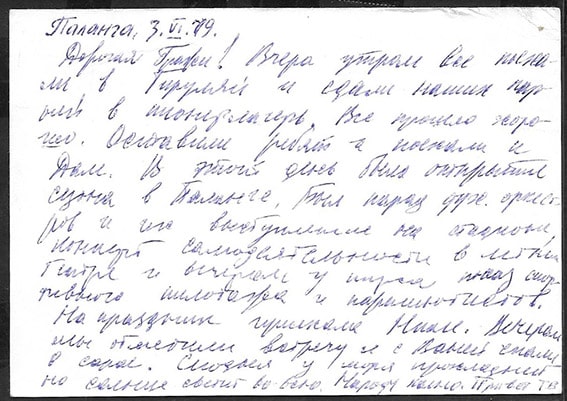 Паланга, 3.VI.79.
Дорогая! Вчера утром все поеха-
ли в и сдали наших пар-
ней в пионерлагерь. Все прошло хоро-
шо. Оставили ребят и поехали к
Дали. В этот день было открытие
сезона в Паланге. Был парад дух. оркест-
ров и их выступление на стадионе,
концерт самодеятельности в летнем
театре и вечером у пирса показ спор-
тивного пилотажа и парашютистов.
На праздник приехала Нина. Вечером
мы отметили встречу и с Ваней спали
в сарае. Сегодня у моря прохладней
но солнце светит во всю. Народу полно. Привет